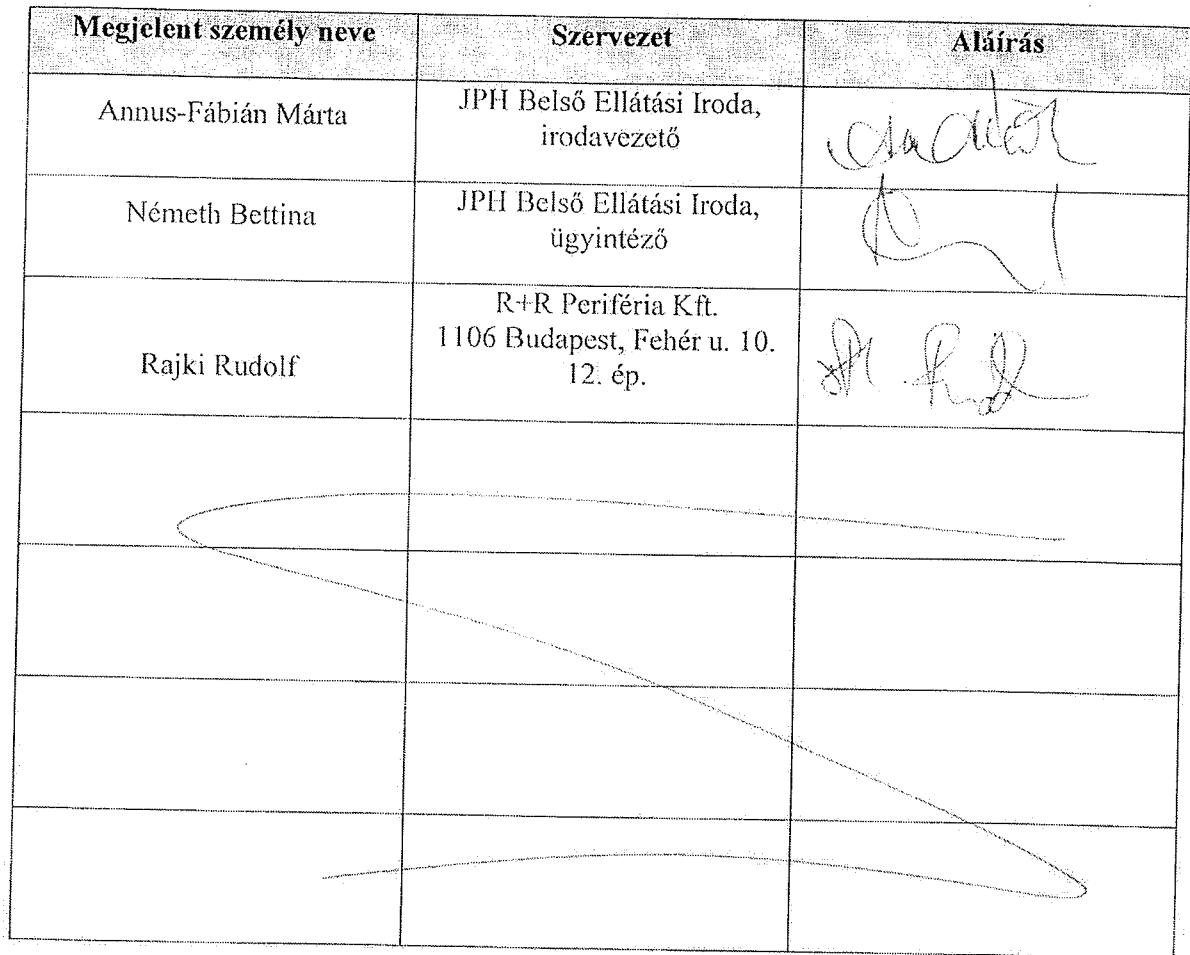 Megjelent személy neve
Szervezet
Aláírás
Annus-Fábián Márta
JPH Belső Ellátási Iroda,
irodavezető
Németh Bettina
JPH Belső Ellátási Iroda,
ügyintéző
Rajki Rudolf
R+R Periféria Kft.
1106 Budapest, Fehér u. 10.
12. ép.